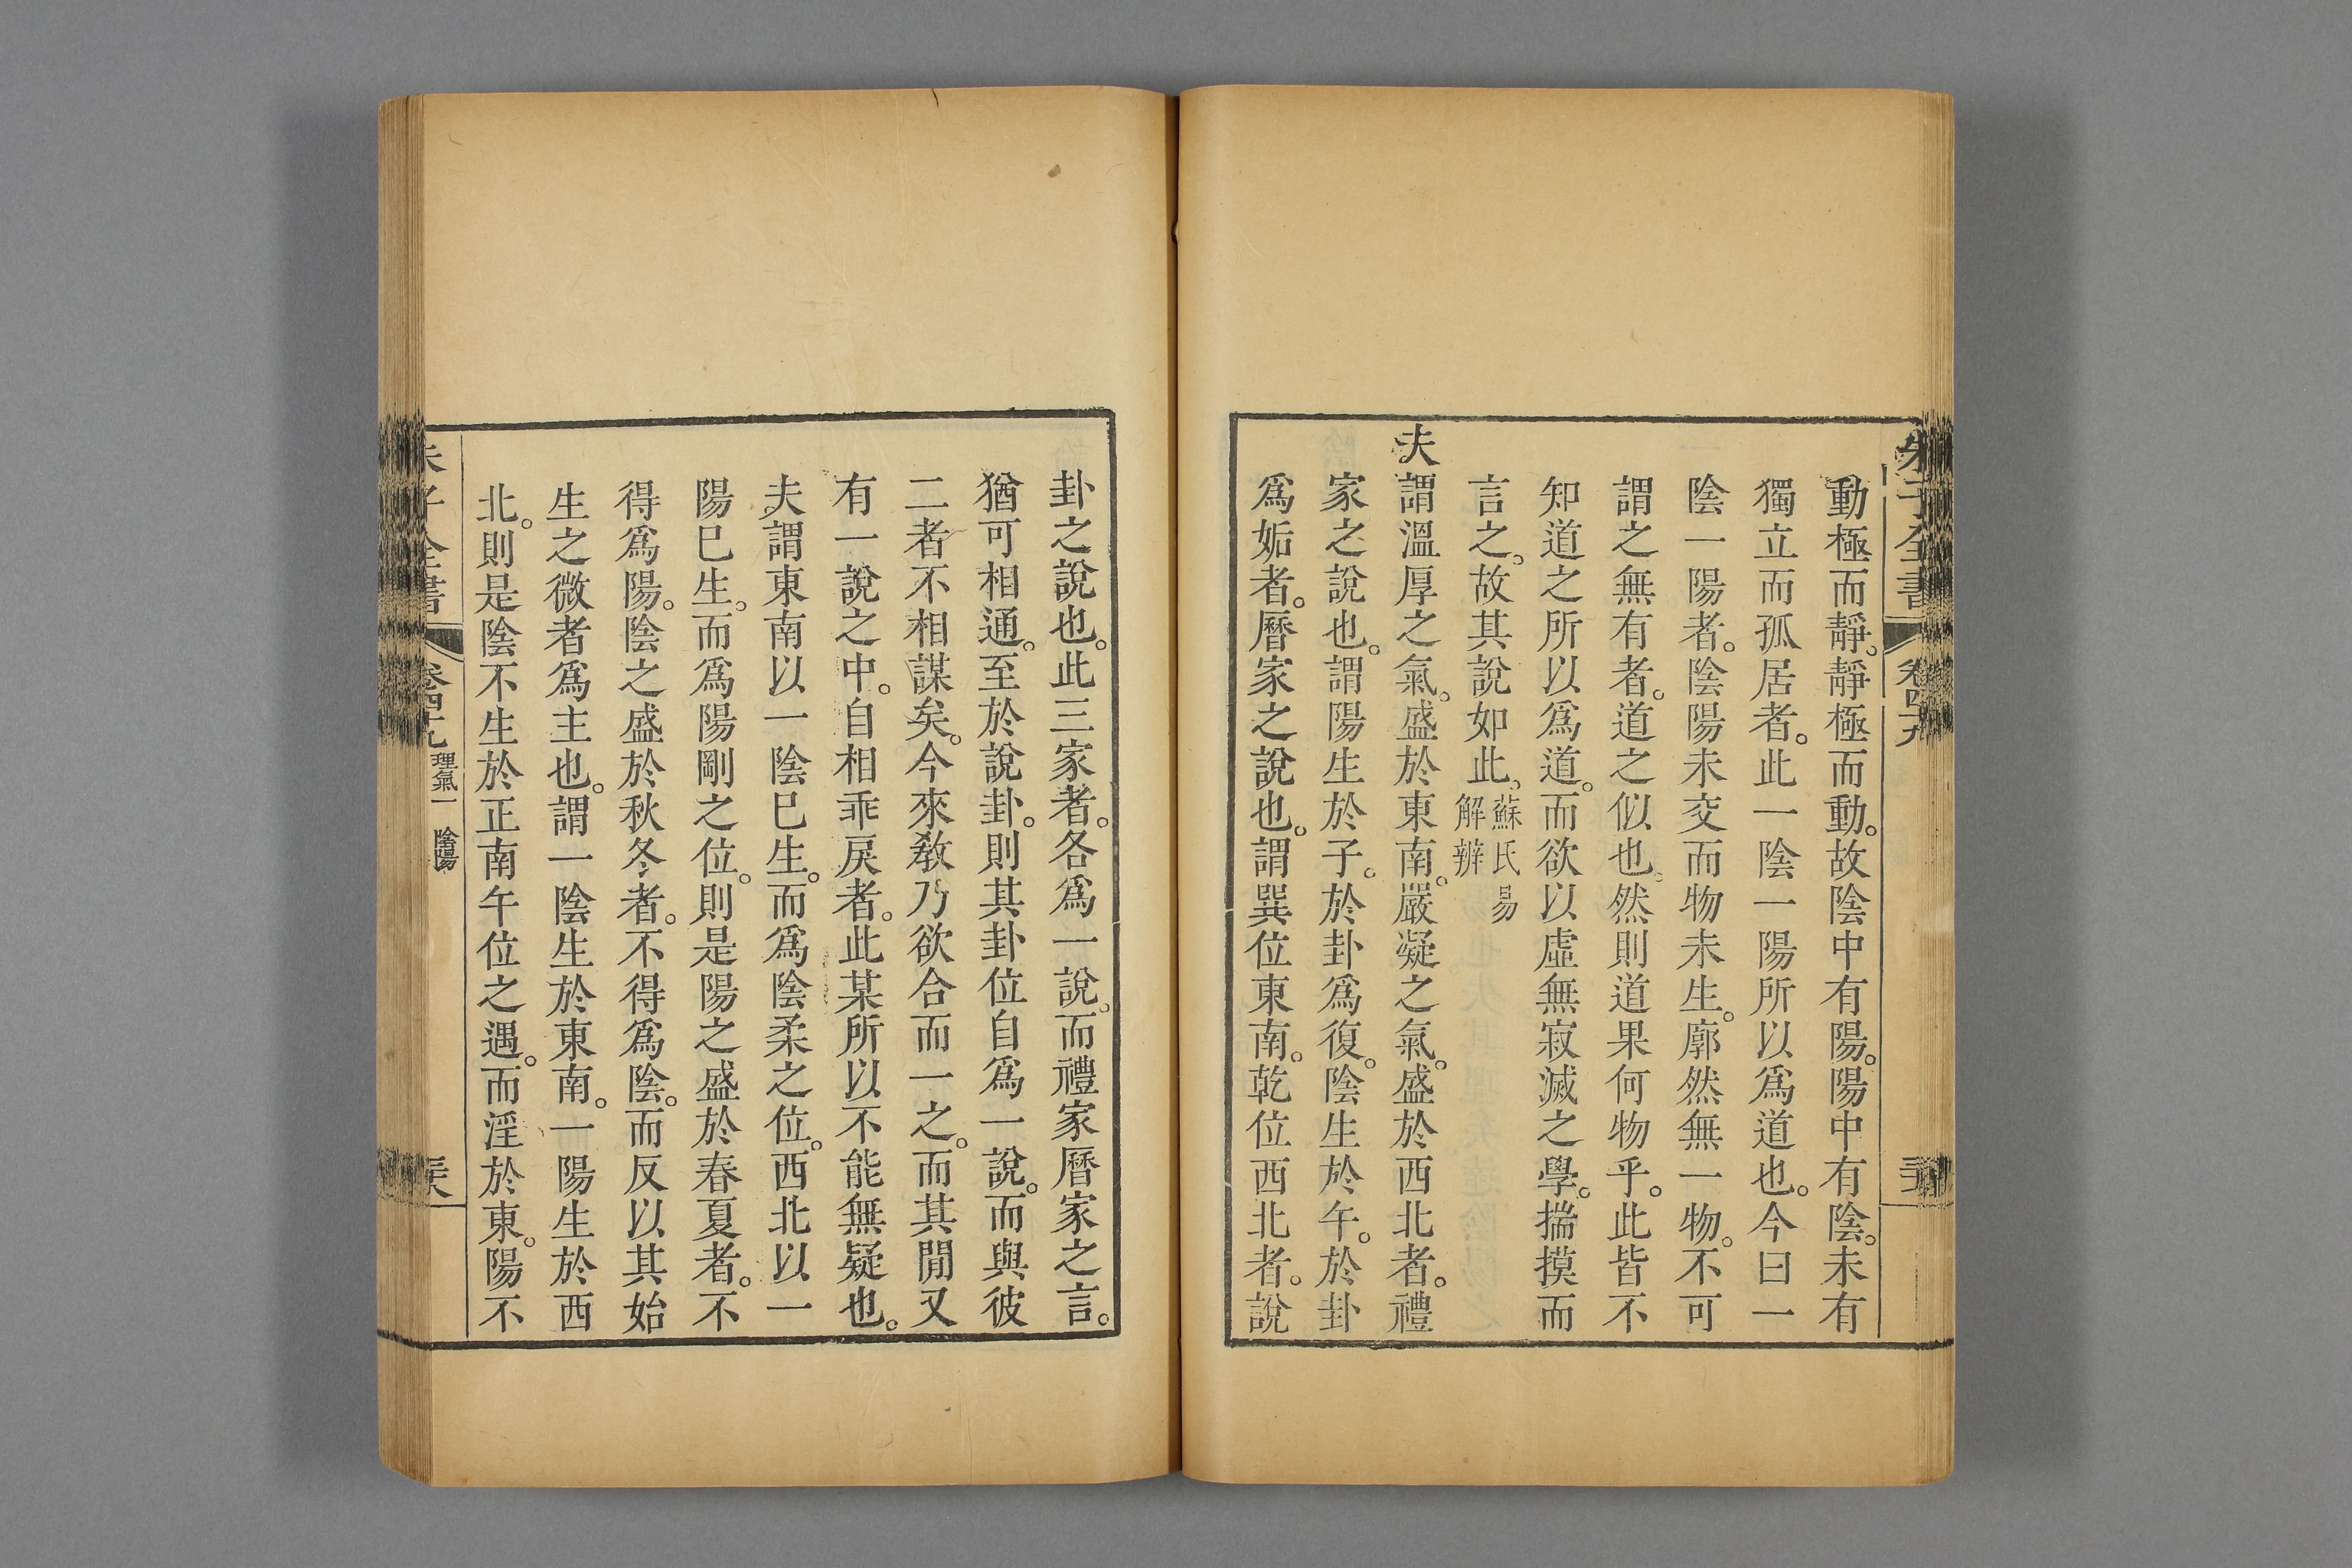 朱子全書 卷四十九
動極而靜。靜極而動。故陰中有陽。陽中有陰。未有
獨立而孤居者。此一陰一陽所以爲道也。今曰一
陰一陽者。陰陽未交而物未生。廓然無一物。不可
謂之無有者。道之似也。然則道果何物乎。此皆不
知道之所以爲道。而欲以虛無寂滅之學。揣摸而
言之。故其說如此。蘇氏易解辨
夫謂溫厚之氣。盛於東南。嚴凝之氣。盛於西北者。禮
家之說也。謂陽生於子。於卦爲復。陰生於午。於卦
爲姤者。曆家之說也。謂巽位東南。乾位西北者。說
卦之說也。此三家者。各爲一說。而禮家曆家之言。
猶可相通。至於說卦。則其卦位自爲一說。而與彼
二者不相謀矣。今來敎乃欲合而一之。而其閒又
有一說之中。自相乖戾者。此某所以不能無疑也。
夫謂東南以一陰已生。而爲陰柔之位。西北以一
陽已生。而爲陽剛之位。則是陽之盛於春夏者。不
得爲陽。陰之盛於秋冬者。不得爲陰。而反以其始
生之微者爲主也。謂一陰生於東南。一陽生於西
北。則是陰不生於正南午位之遇。而淫於東。陽不
朱子全書 卷四十九 理氣一 陰陽